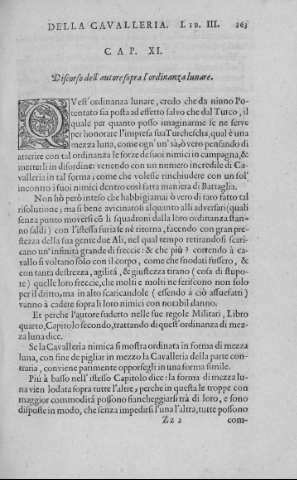 DELLA CAVALLERIA. LIB. III. 263
CAP. XI.
Discorso dell'autore sopra l'ordinanza lunare.
QVest'ordinanza lunare, credo che da niuno Po-
tentato sia posta ad effetto salvo che dal Turco, il
quale per quanto posso imaginarme se ne serve
per honorare l'impresa sua Turchesca, qual è una
mezza luna, come ogn'un' sà, ò vero pensando di
atterire con tal ordinanza le forze de suoi nimici in campagna, &
metterli in disordine: venendo con un numero incredile di Ca-
valleria in tal forma, come che volesse rinchiudere con un sol'
incontro i suoi nimici dentro così fatta maniera di Battaglia.
Non hò però inteso che habbi giamai ò vero di raro fatto tal
risolutione, ma si bene avicinatosi alquanto alli adversari (quali
senza punto moversi cō li squadroni dalla loro ordinanza stan-
no saldi) con l'istessa furia se nè ritorna, facendo con gran pre-
stezza della sua gente due Ali, nel qual tempo retirandosi scari-
cano un' infinita grande di freccie: & che più? correndo à ca-
vallo si voltano solo con il corpo, come che snodati fussero, &
con tanta destrezza, agilità, & giustezza tirano (cosa di stupo-
re) quelle loro freccie, che molti e molti ne feriscono non solo
per il dritto, ma in alto scaricandole (essendo à ciò assuefatti)
vanno à cadere sopra li loro nimici con notabil danno.
Et perche l'autore sudetto nelle sue regole Militari, Libro
quarto, Capitolo secondo, trattando di quest'ordinanza di mez-
za luna dice.
Se la Cavalleria nimica si mostra ordinata in forma di mezza
luna, con fine de pigliar in mezzo la Cavalleria della parte con-
traria, conviene parimente opporsegli in una forma simile.
Più à basso nell'istesso Capitolo dice: la forma di mezza lu-
na vien lodata sopra tutte l'altre, perche in questa le troppe con
maggior commodità possono fiancheggiarsi trà di loro, e sono
disposte in modo, che senza impedirsi l'una l'altra, tutte possono
Zz 2 com-